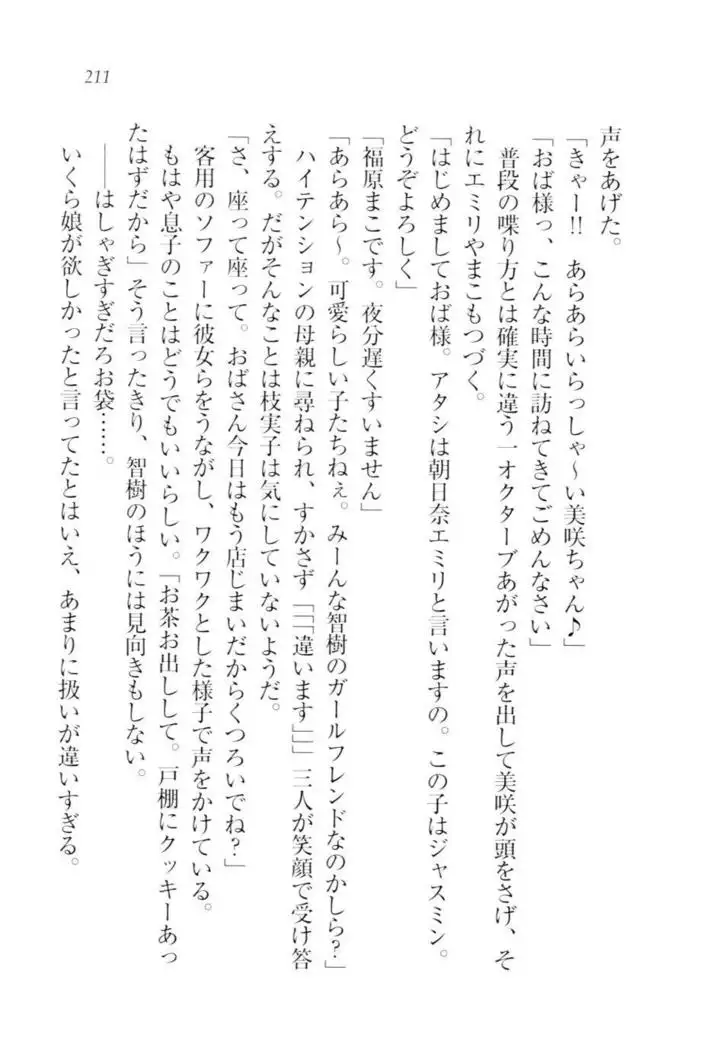 211
声をあげた。
「きゃー!! あらあらいらっしゃ～い美咲ちゃん♪」
「おば様っ、こんな時間に訪ねてきてごめんなさい」
普段の喋り方とは確実に違う一オクターブあがった声を出して美咲が頭をさげ、そ
れにエミリやまこもつづく。
「はじめましておば様。アタシは朝日奈エミリと言いますの。この子はジャスミン。
どうぞよろしく」
「福原まこです。夜分遅くすいません」
「あらあら～。可愛らしい子たちねぇ。みーんな智樹のガールフレンドなのかしら？」
ハイテンションの母親に尋ねられ、すかさず「「「違います」」」三人が笑顔で受け答
えする。だがそんなことは枝実子は気にしていないようだ。
「さ、座って座って。おばさん今日はもう店じまいだからくつろいでね？」
客用のソファーに彼女らをうながし、ワクワクとした様子で声をかけている。
もはや息子のことはどうでもいいらしい。「お茶お出しして。戸棚にクッキーあっ
たはずだから」そう言ったきり、智樹のほうには見向きもしない。
――はしゃぎすぎだろお袋……。
いくら娘が欲しかったと言ってたとはいえ、あまりに扱いが違いすぎる。